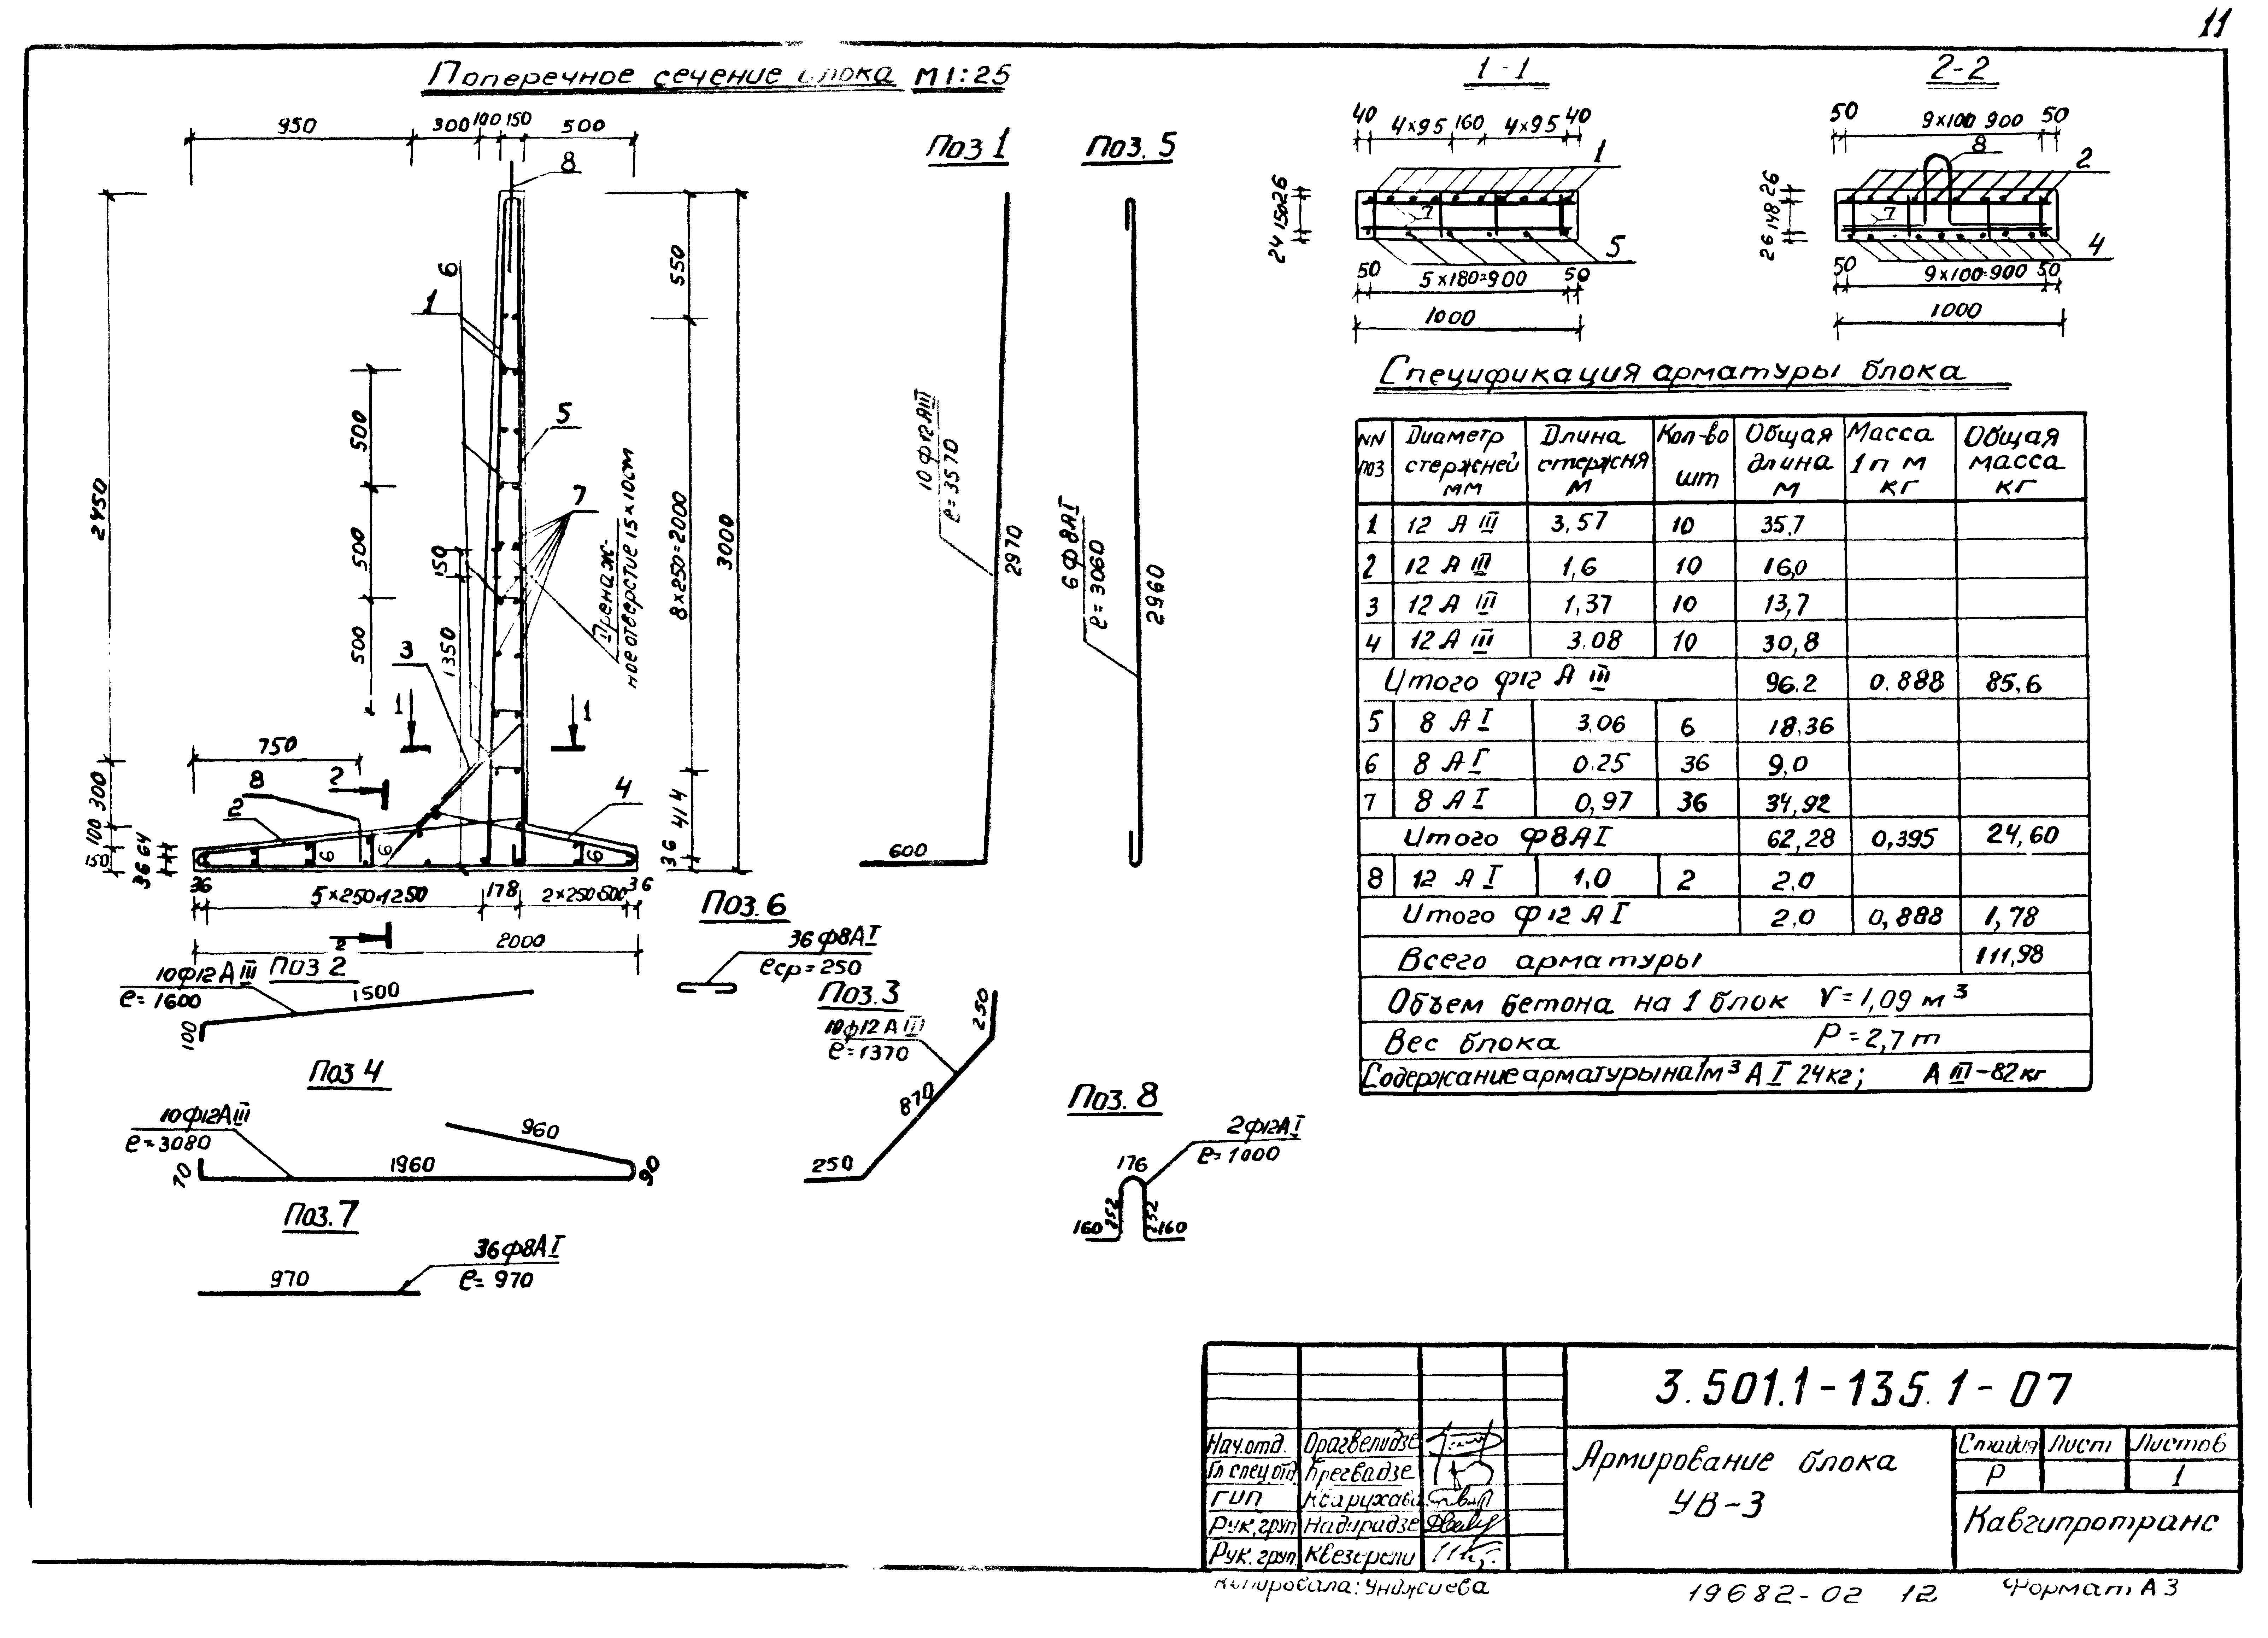 11
Поперечное сечение блока М1:25
950 300 100 150 500
8
2450
300
100
150
64
36
6
1
500
500
500
150
1350
5
7
Дренаж-
ное отверстие 15×10см
550
8×250=2000
414
36
3000
3
1 1
750
2
8
2
4
6 6 6
36 5×250=1250 178 2×250=500 36
2
2000
Поз 1
10Ф12АIII
ℓ=3570
2970
600
Поз. 5
6Ф8АI
ℓ=3060
2960
Поз 2
10Ф12АIII
ℓ=1600
1500
100
Поз 4
10Ф12АIII
ℓ=3080
960
1960
70
90
Поз. 7
36Ф8АI
ℓ=970
970
Поз. 6
36Ф8АI
ℓср=250
Поз. 3
10Ф12АIII
ℓ=1370
250
870
250
Поз. 8
2Ф12АI
ℓ=1000
176
252 252
160 160
1-1
40 4×95 160 4×95 40
1
26
150
24
7
5
50 5×180=900 50
1000
2-2
50 9×100 900 50
8
2
26
148
26
7
4
50 9×100=900 50
1000
Спецификация арматуры блока
NN поз Диаметр стержней мм Длина стержня м Кол-во шт Общая длина м Масса 1 п м кг Общая масса кг
1 12 А III 3,57 10 35,7
2 12 А III 1,6 10 16,0
3 12 А III 1,37 10 13,7
4 12 А III 3.08 10 30,8
Итого Ф12 А III 96.2 0.888 85,6
5 8 А I 3.06 6 18.36
6 8 А I 0.25 36 9,0
7 8 А I 0,97 36 34,92
Итого Ф8АI 62,28 0,395 24,60
8 12 А I 1,0 2 2.0
Итого Ф12 А I 2.0 0,888 1,78
Всего арматуры 111,98
Объем бетона на 1 блок V=1,09 м³
Вес блока Р=2,7т
Содержание арматуры на 1м³ А I 24кг; А III-82кг
3.501.1-135.1-07
Нач.отд.
Гл спец.отд Брегвадзе
ГИП
Рук.груп Надирадзе
Рук.груп.
Армирование блока
УВ-3
Стадия Лист Листов
Р 1
Кавгипротранс
Копировала:
19682-02 12
Формат А3